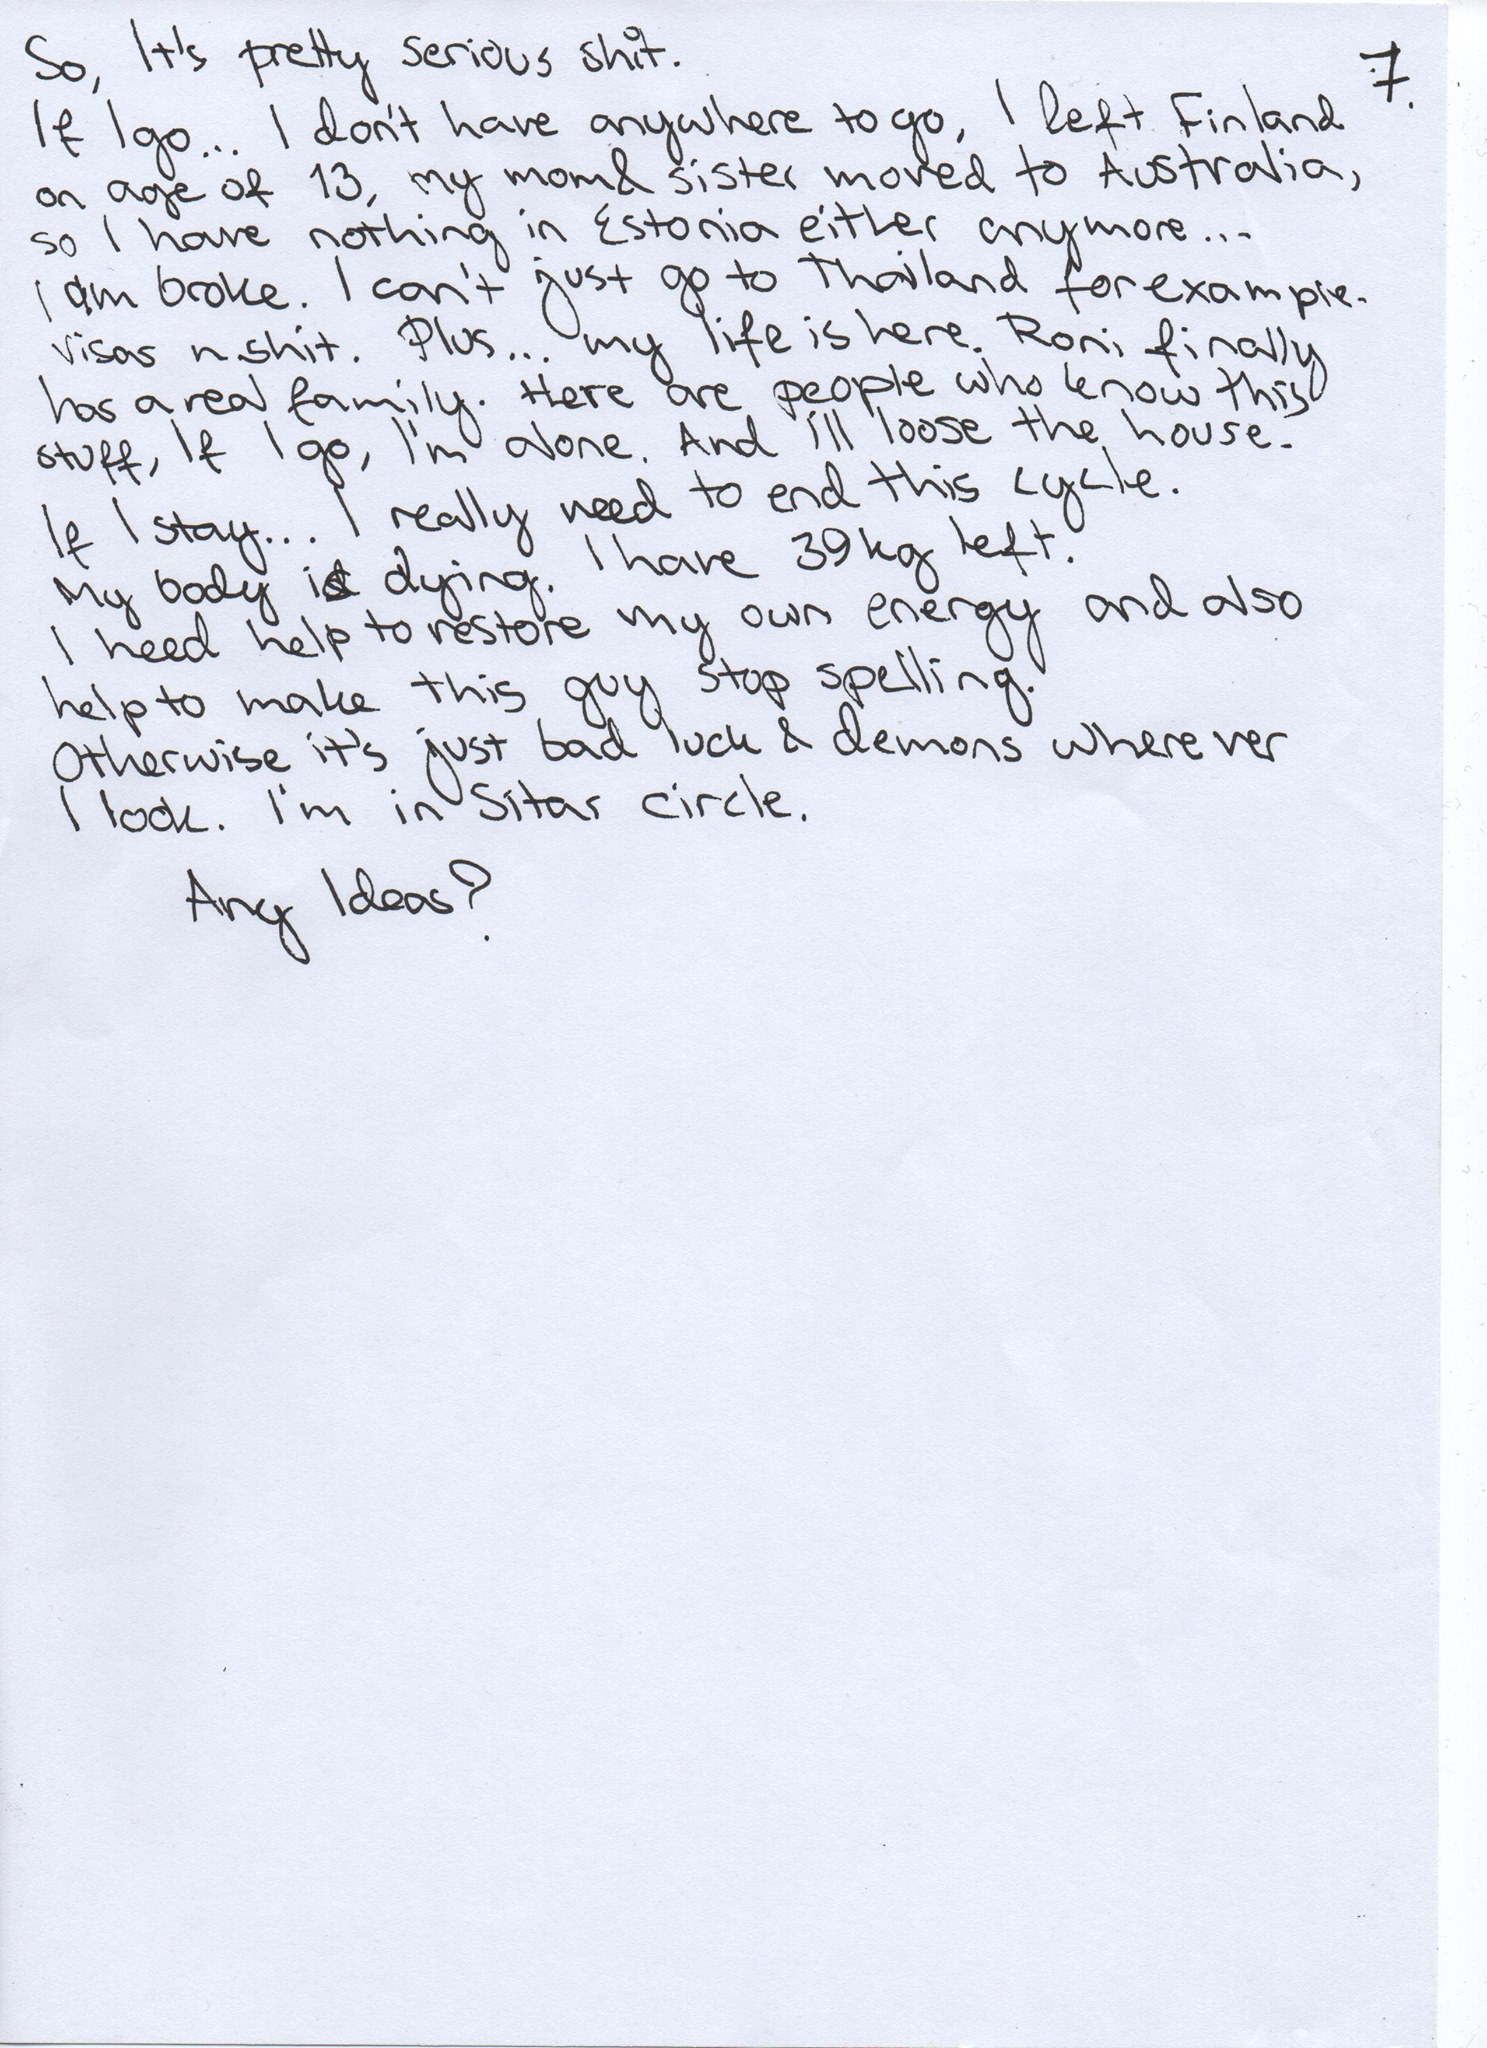 So, It's pretty serious shit.
7.
If I go... I don't have anywhere to go, I left Finland
on age of 13, my mom & sister moved to Australia,
so I have nothing in Estonia either anymore...
I am broke. I can't just go to Thailand for example.
visas n shit. Plus... my life is here. Roni finally
has a real family. Here are people who know this
stuff, If I go, I'm alone. And I'll loose the house.
If I stay... I really need to end this cycle.
My body is dying. I have 39kg left.
I need help to restore my own energy and also
help to make this guy stop spelling.
Otherwise it's just bad luck & demons wherever
I look. I'm in Sitar circle.
Any Ideas?